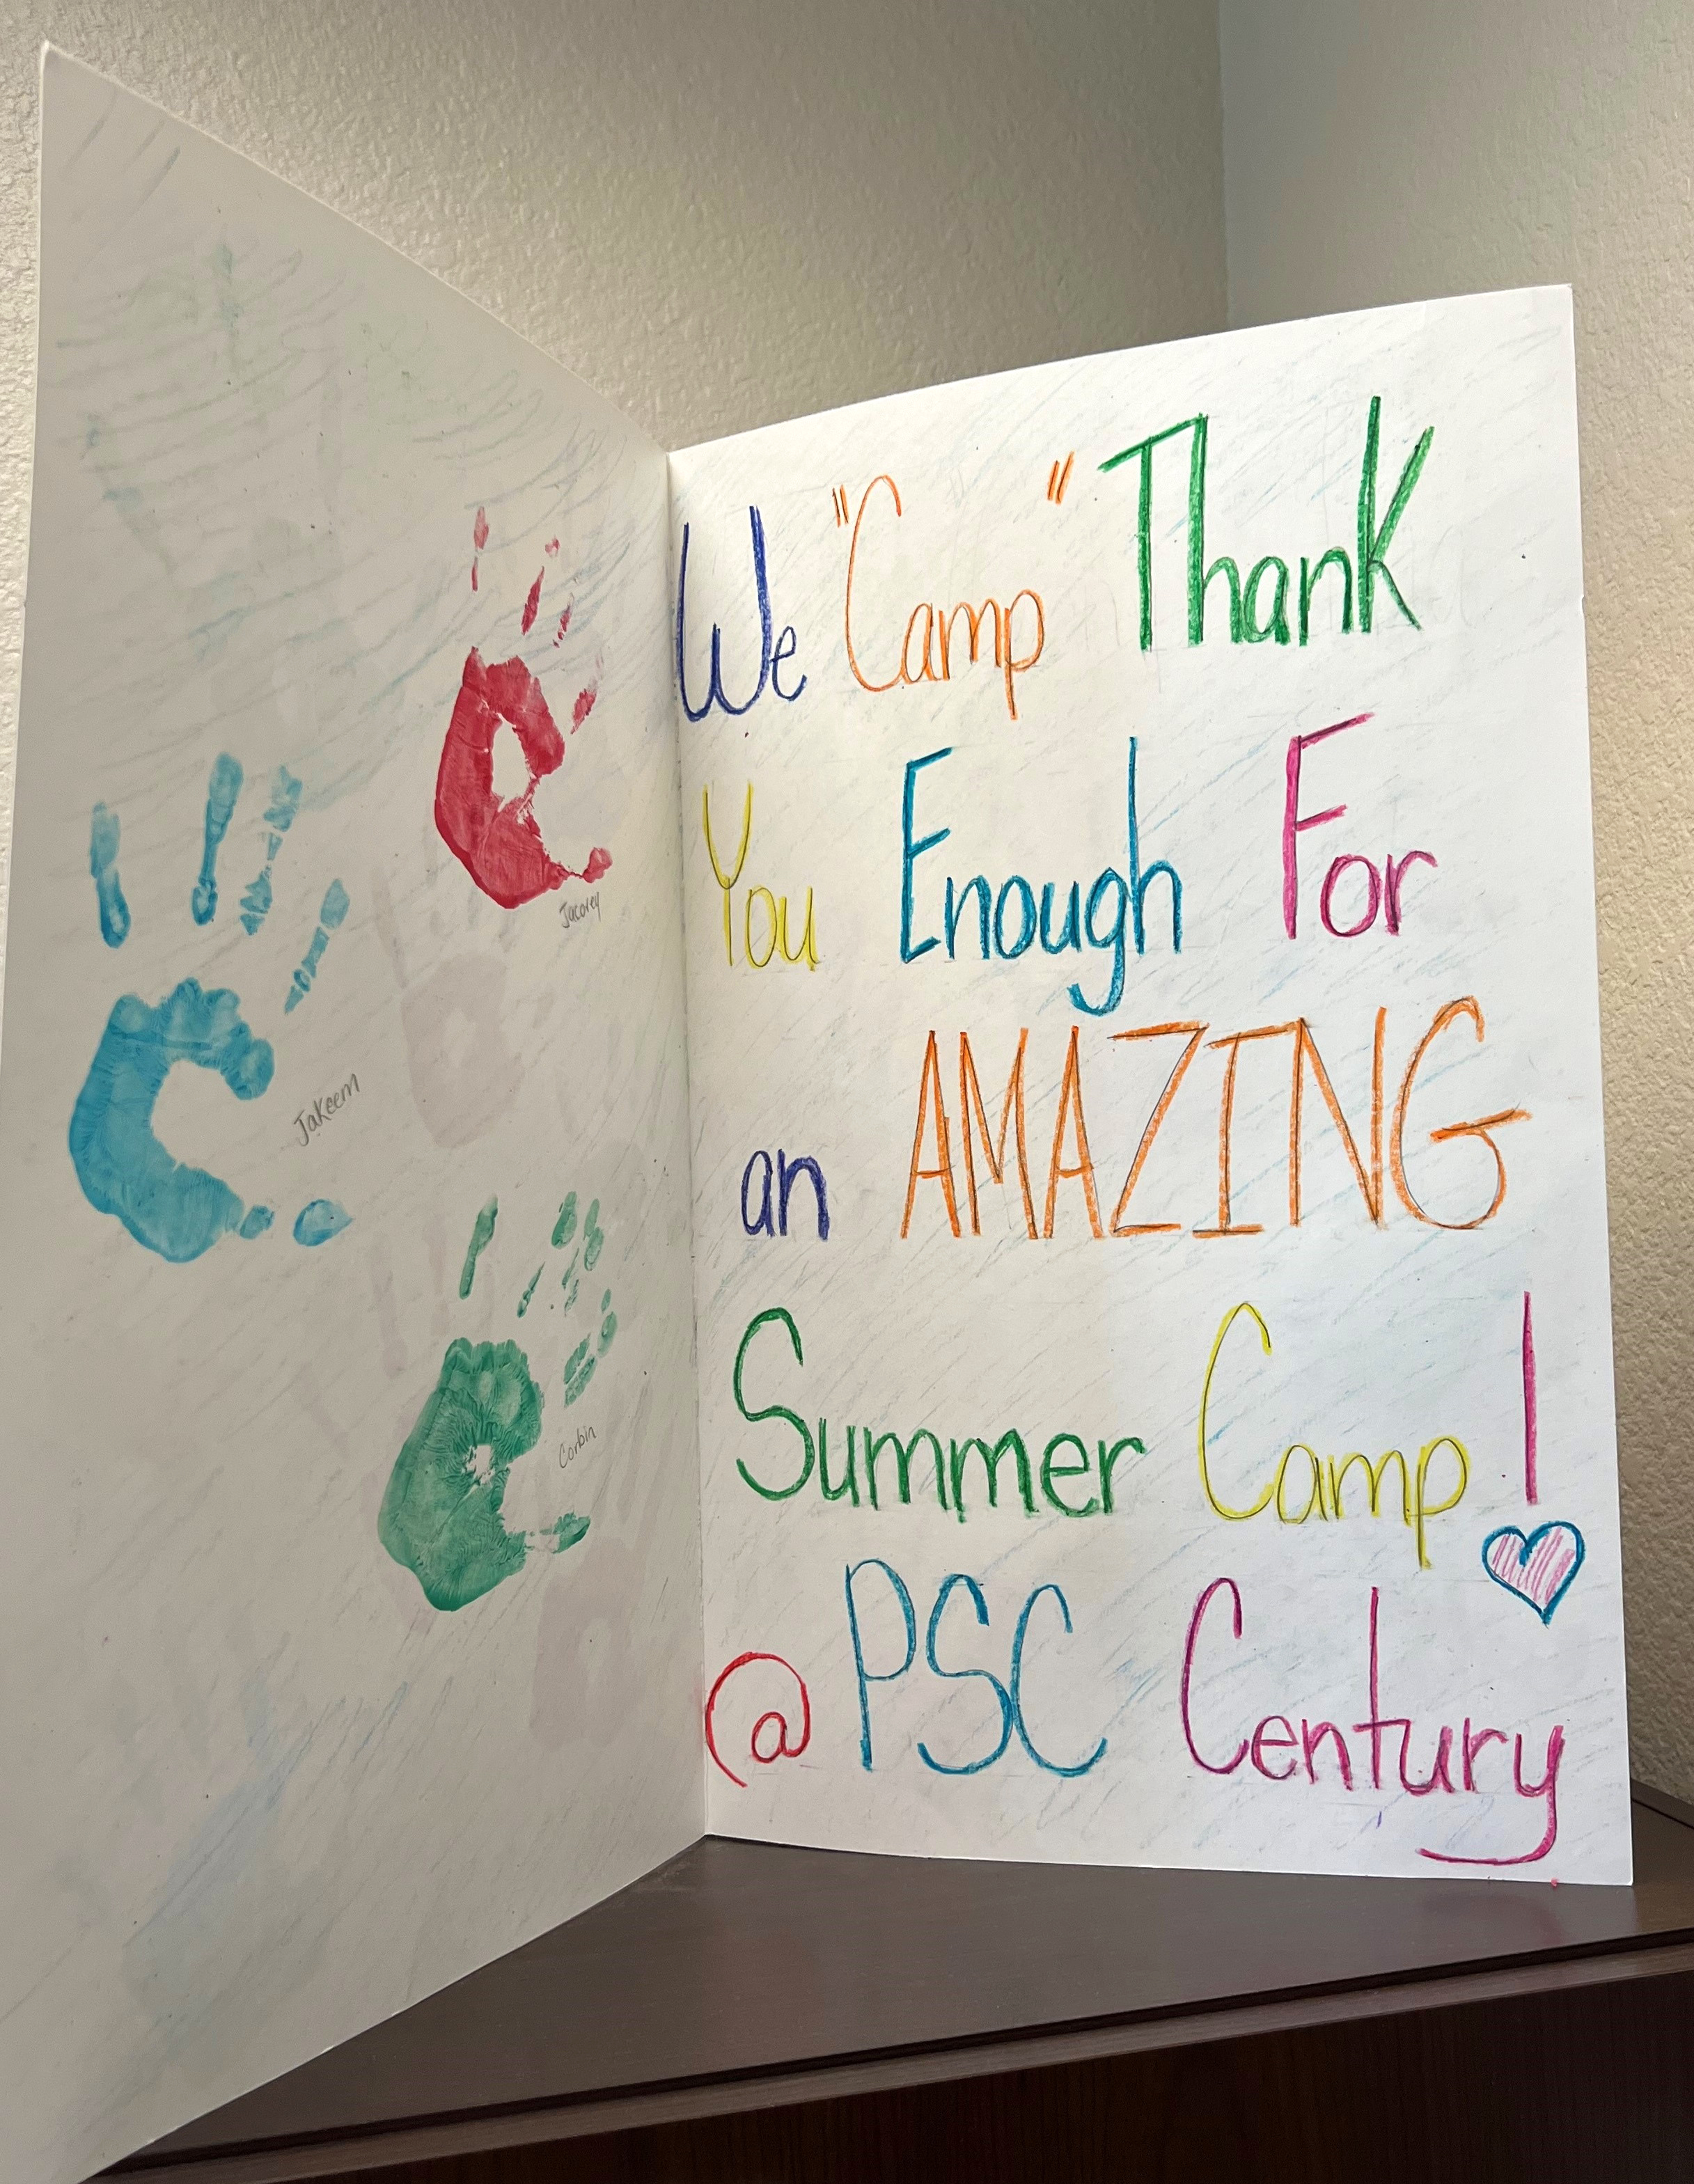 Jacorey
JaKeem
Corbin
We "Camp" Thank
You Enough For
an AMAZING
Summer Camp!
@ PSC Century